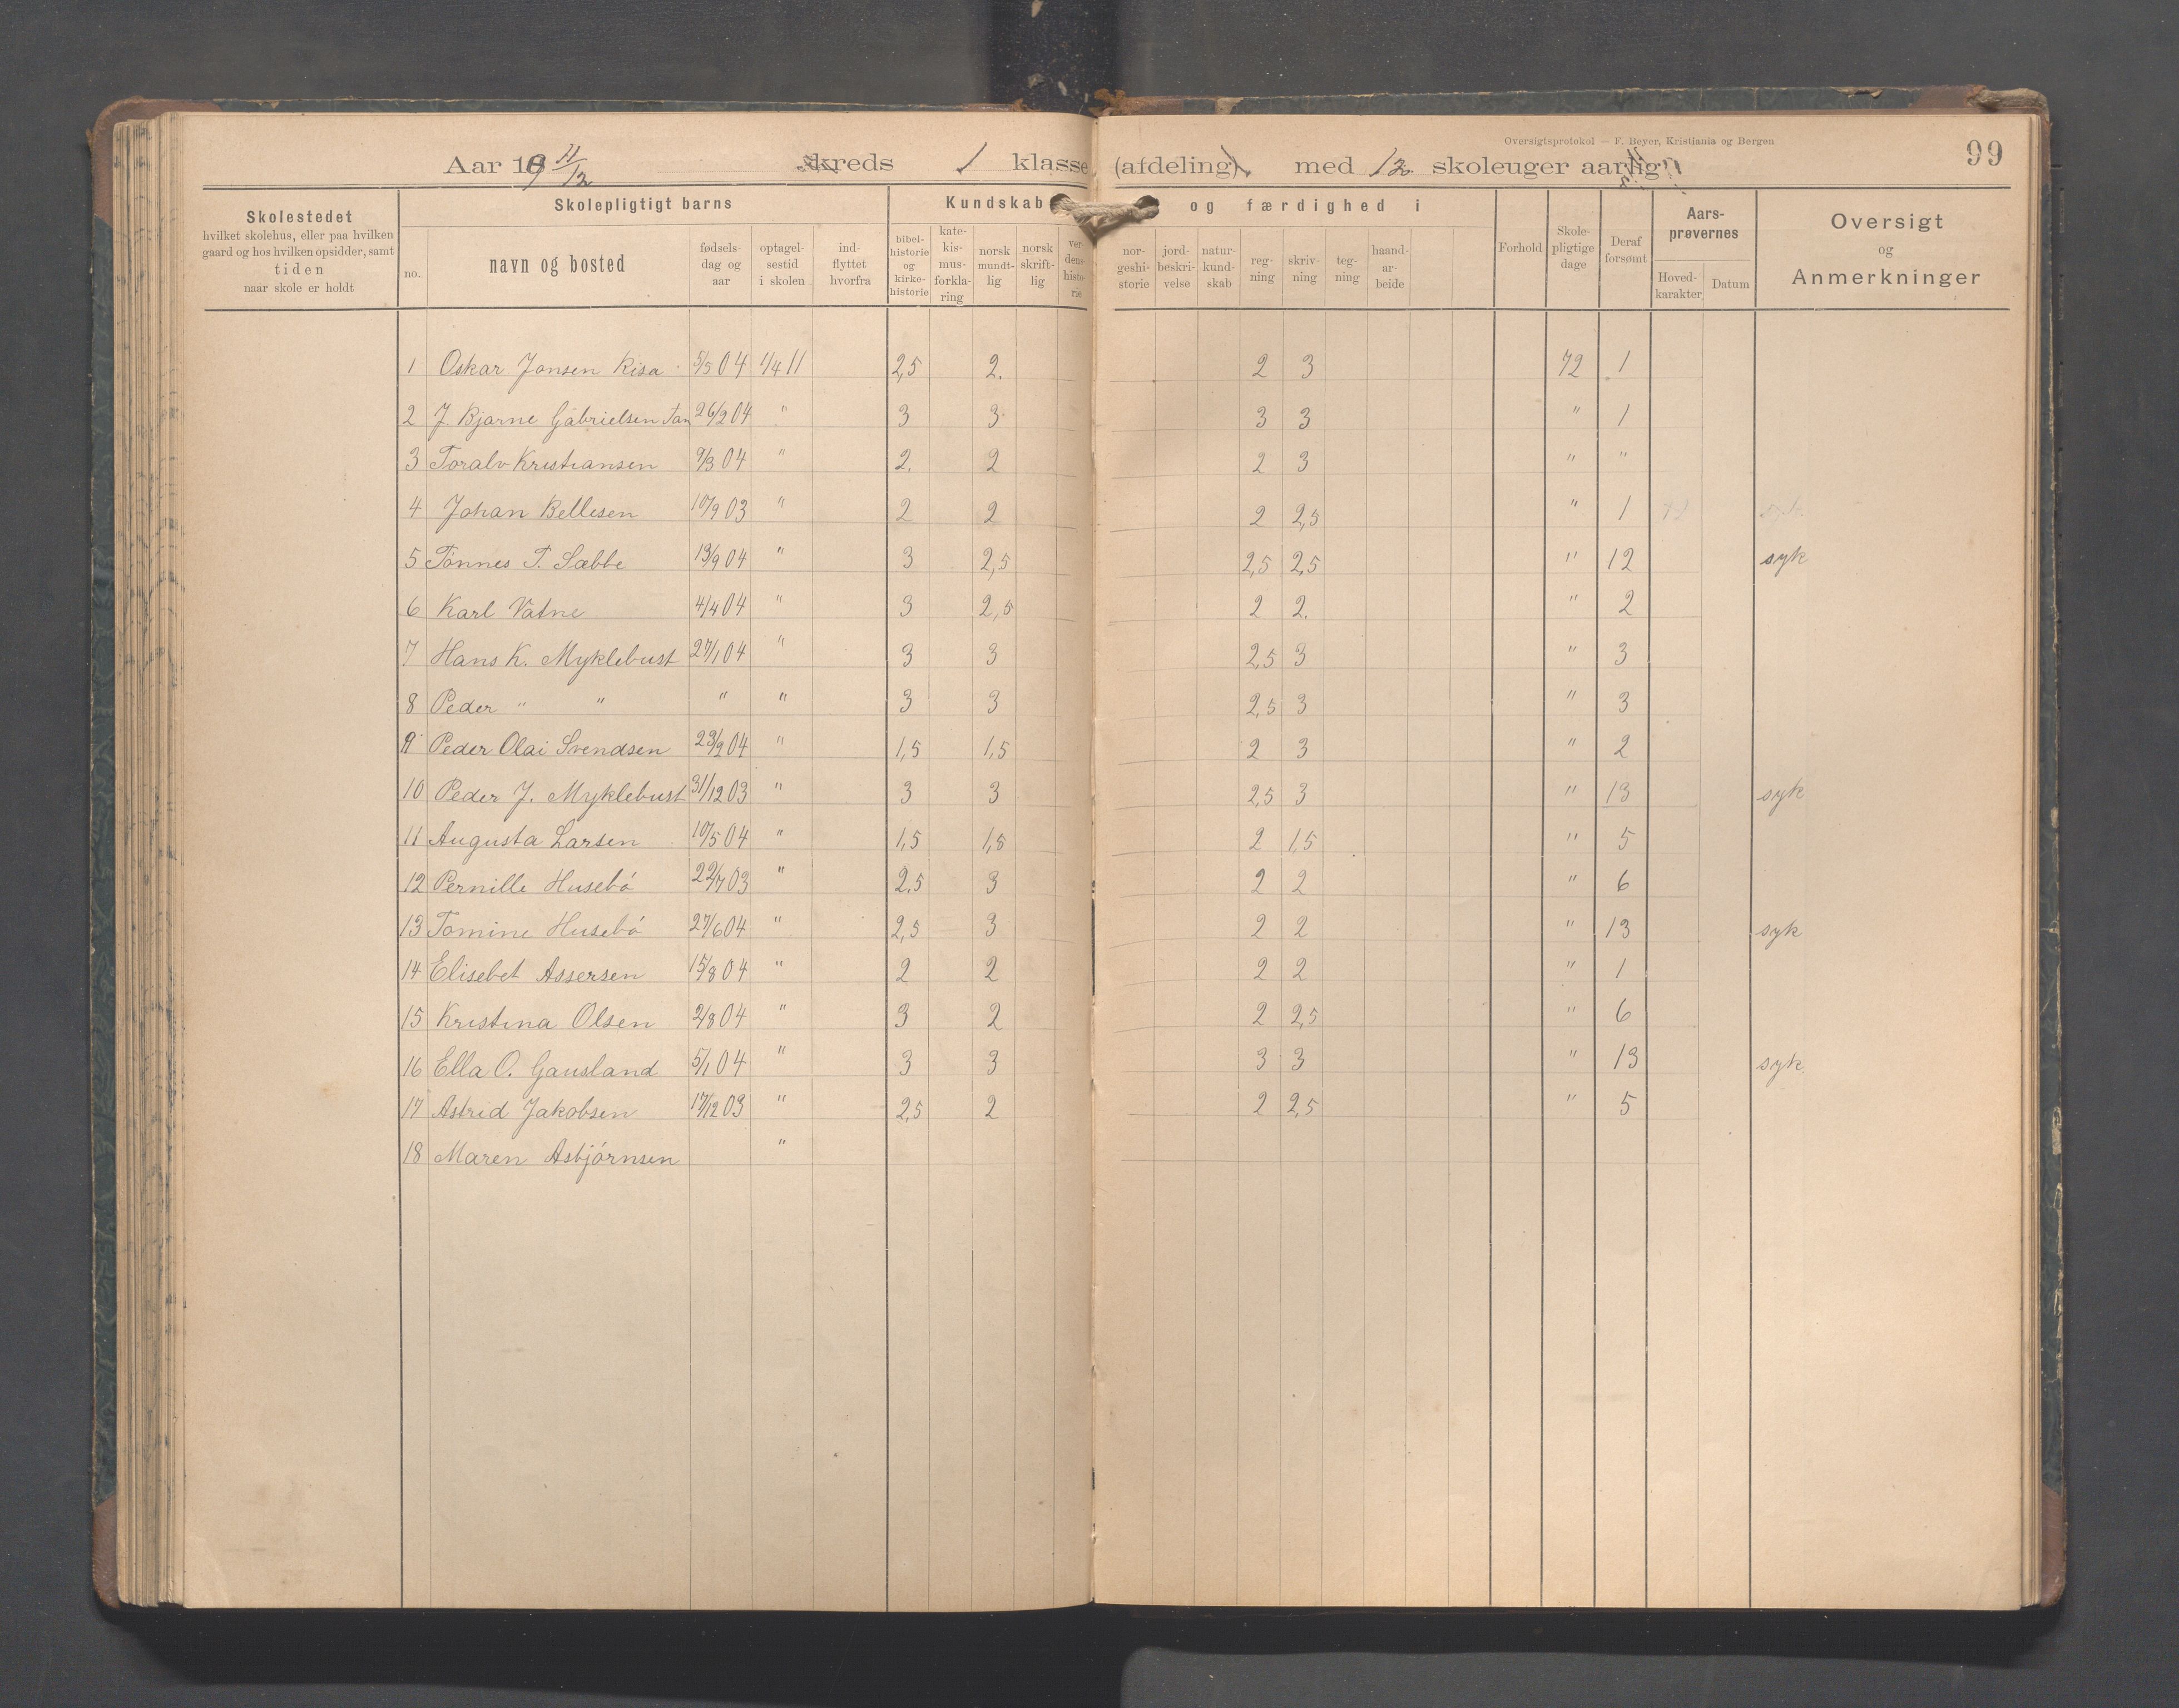 Oversigtsprotokol — F. Beyer, Kristiania og Bergen
99
Aar 19 11/12 kreds 1 klasse (afdeling) med 12 skoleuger aarlig
Skolestedet hvilket skolehus, eller paa hvilken gaard og hos hvilken opsidder, samt tiden naar skole er holdt
Skolepligtigt barns
no. navn og bosted fødsels-dag og aar optagel-sestid i skolen ind-flyttet hvorfra
Kundskab og færdighed i
bibel-historie og kirke-historie kate-kis-mus-forkla-ring norsk mundt-lig norsk skrift-lig ver-dens-histo-rie nor-geshi-storie jord-beskri-velse natur-kund-skab reg-ning skriv-ning teg-ning haand-ar-beide
Forhold Skole-pligtige dage Deraf forsømt
Aars-prøvernes Hoved-karakter Datum
Oversigt og Anmerkninger
1 Oskar Jonsen Risa 5/3 04 1/4 11 2,5 2. 2 3 72 1
2 J. Bjarne Gabrielsen 26/2 04 " 3 3 3 3 " 1
3 Toralv Kristiansen 9/3 04 " 2. 2 2 3 " "
4 Johan Bellesen 10/9 03 " 2 2 2 2,5 " 1
5 Tönnes T. Sæbbe 13/9 04 " 3 2,5 2,5 2,5 " 12 syk
6 Karl Vatne 4/4 04 " 3 2,5 2 2. " 2
7 Hans K. Myklebust 27/1 04 " 3 3 2,5 3 " 3
8 Peder " " " " 3 3 2,5 3 " 3
9 Peder Olai Svendsen 23/9 04 " 1,5 1,5 2 3 " 2
10 Peder J. Myklebust 31/12 03 " 3 3 2,5 3 " 13 syk
11 Augusta Larsen 10/5 04 " 1,5 1,5 2 1,5 " 5
12 Pernille Husebö 22/7 03 " 2.5 3 2 2 " 6
13 Tomine Husebö 27/6 04 " 2,5 3 2 2 " 13 syk
14 Elisebet Assersen 15/8 04 " 2 2 2 2 " 1
15 Kristina Olsen 2/8 04 " 3 2 2 2,5 " 6
16 Ella O. Gausland 5/1 04 " 3 3 3 3 " 13 syk
17 Astrid Jakobsen 17/12 03 " 2,5 2 2 2,5 " 5
18 Maren Asbjörnsen "